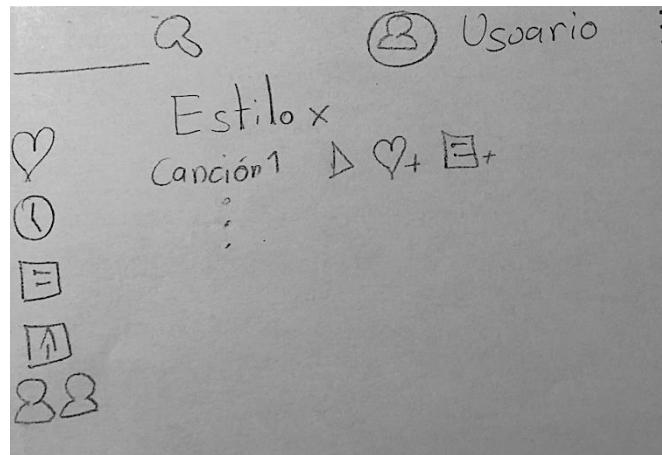 Usuario
Estilo x
Canción 1